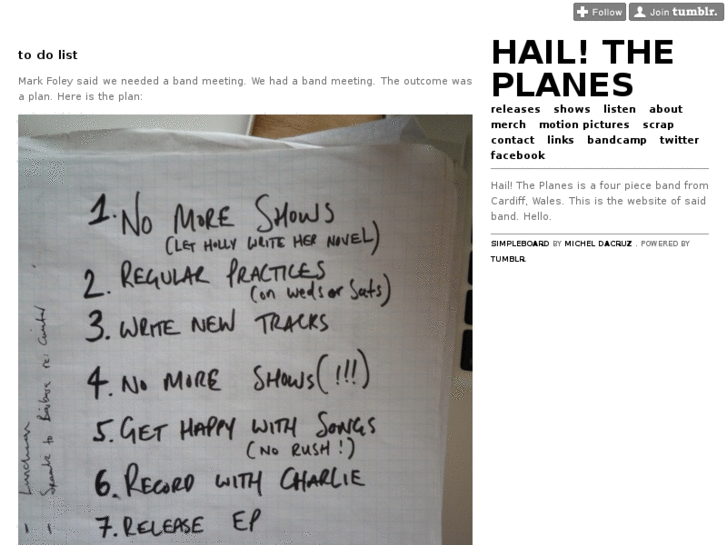 Follow
Join tumblr.
to do list
Mark Foley said we needed a band meeting. We had a band meeting. The outcome was
a plan. Here is the plan:
1. NO MORE SHOWS
(LET HOLLY WRITE HER NOVEL)
2. REGULAR PRACTICES
(on weds or Sats)
3. WRITE NEW TRACKS
4. NO MORE SHOWS (!!!)
5. GET HAPPY WITH SONGS
(NO RUSH!)
6. RECORD WITH CHARLIE
7. RELEASE EP
HAIL! THE
PLANES
releases shows listen about
merch motion pictures scrap
contact links bandcamp twitter
facebook
Hail! The Planes is a four piece band from
Cardiff, Wales. This is the website of said
band. Hello.
SIMPLEBOARD BY MICHEL DACRUZ . POWERED BY
TUMBLR.